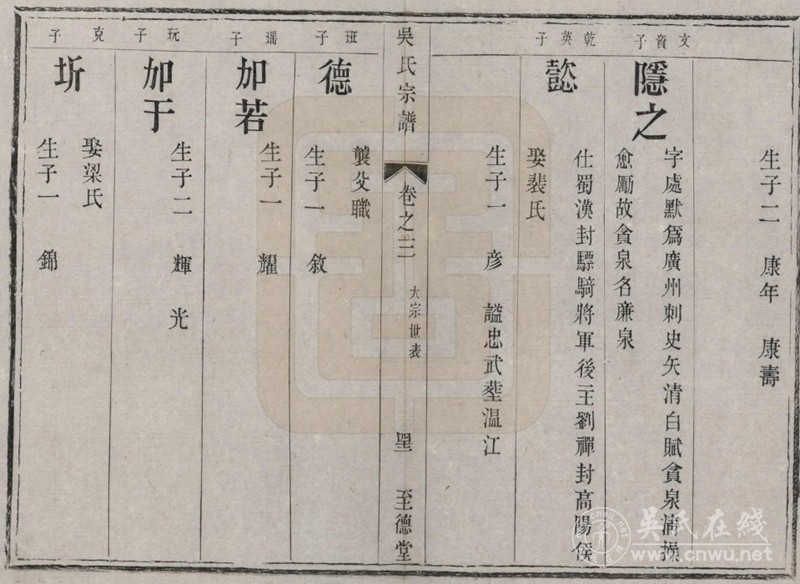 生子二 康年 康壽
文資子
隱之
字處默爲廣州刺史矢清白賦貪泉淸操
愈勵故貪泉名亷泉
乾英子
懿
仕蜀漢封驃騎將軍後主劉禪封高陽侯
娶裴氏
生子一 彦 謚忠武塟温江
吳氏宗譜
卷之三
大宗世表
至德堂
班子
德
襲父職
生子一 敘
瑶子
加若
生子一 耀
玩子
加于
生子二 輝 光
克子
圻
娶梁氏
生子一 錦
吴氏在线
www.cnwu.net